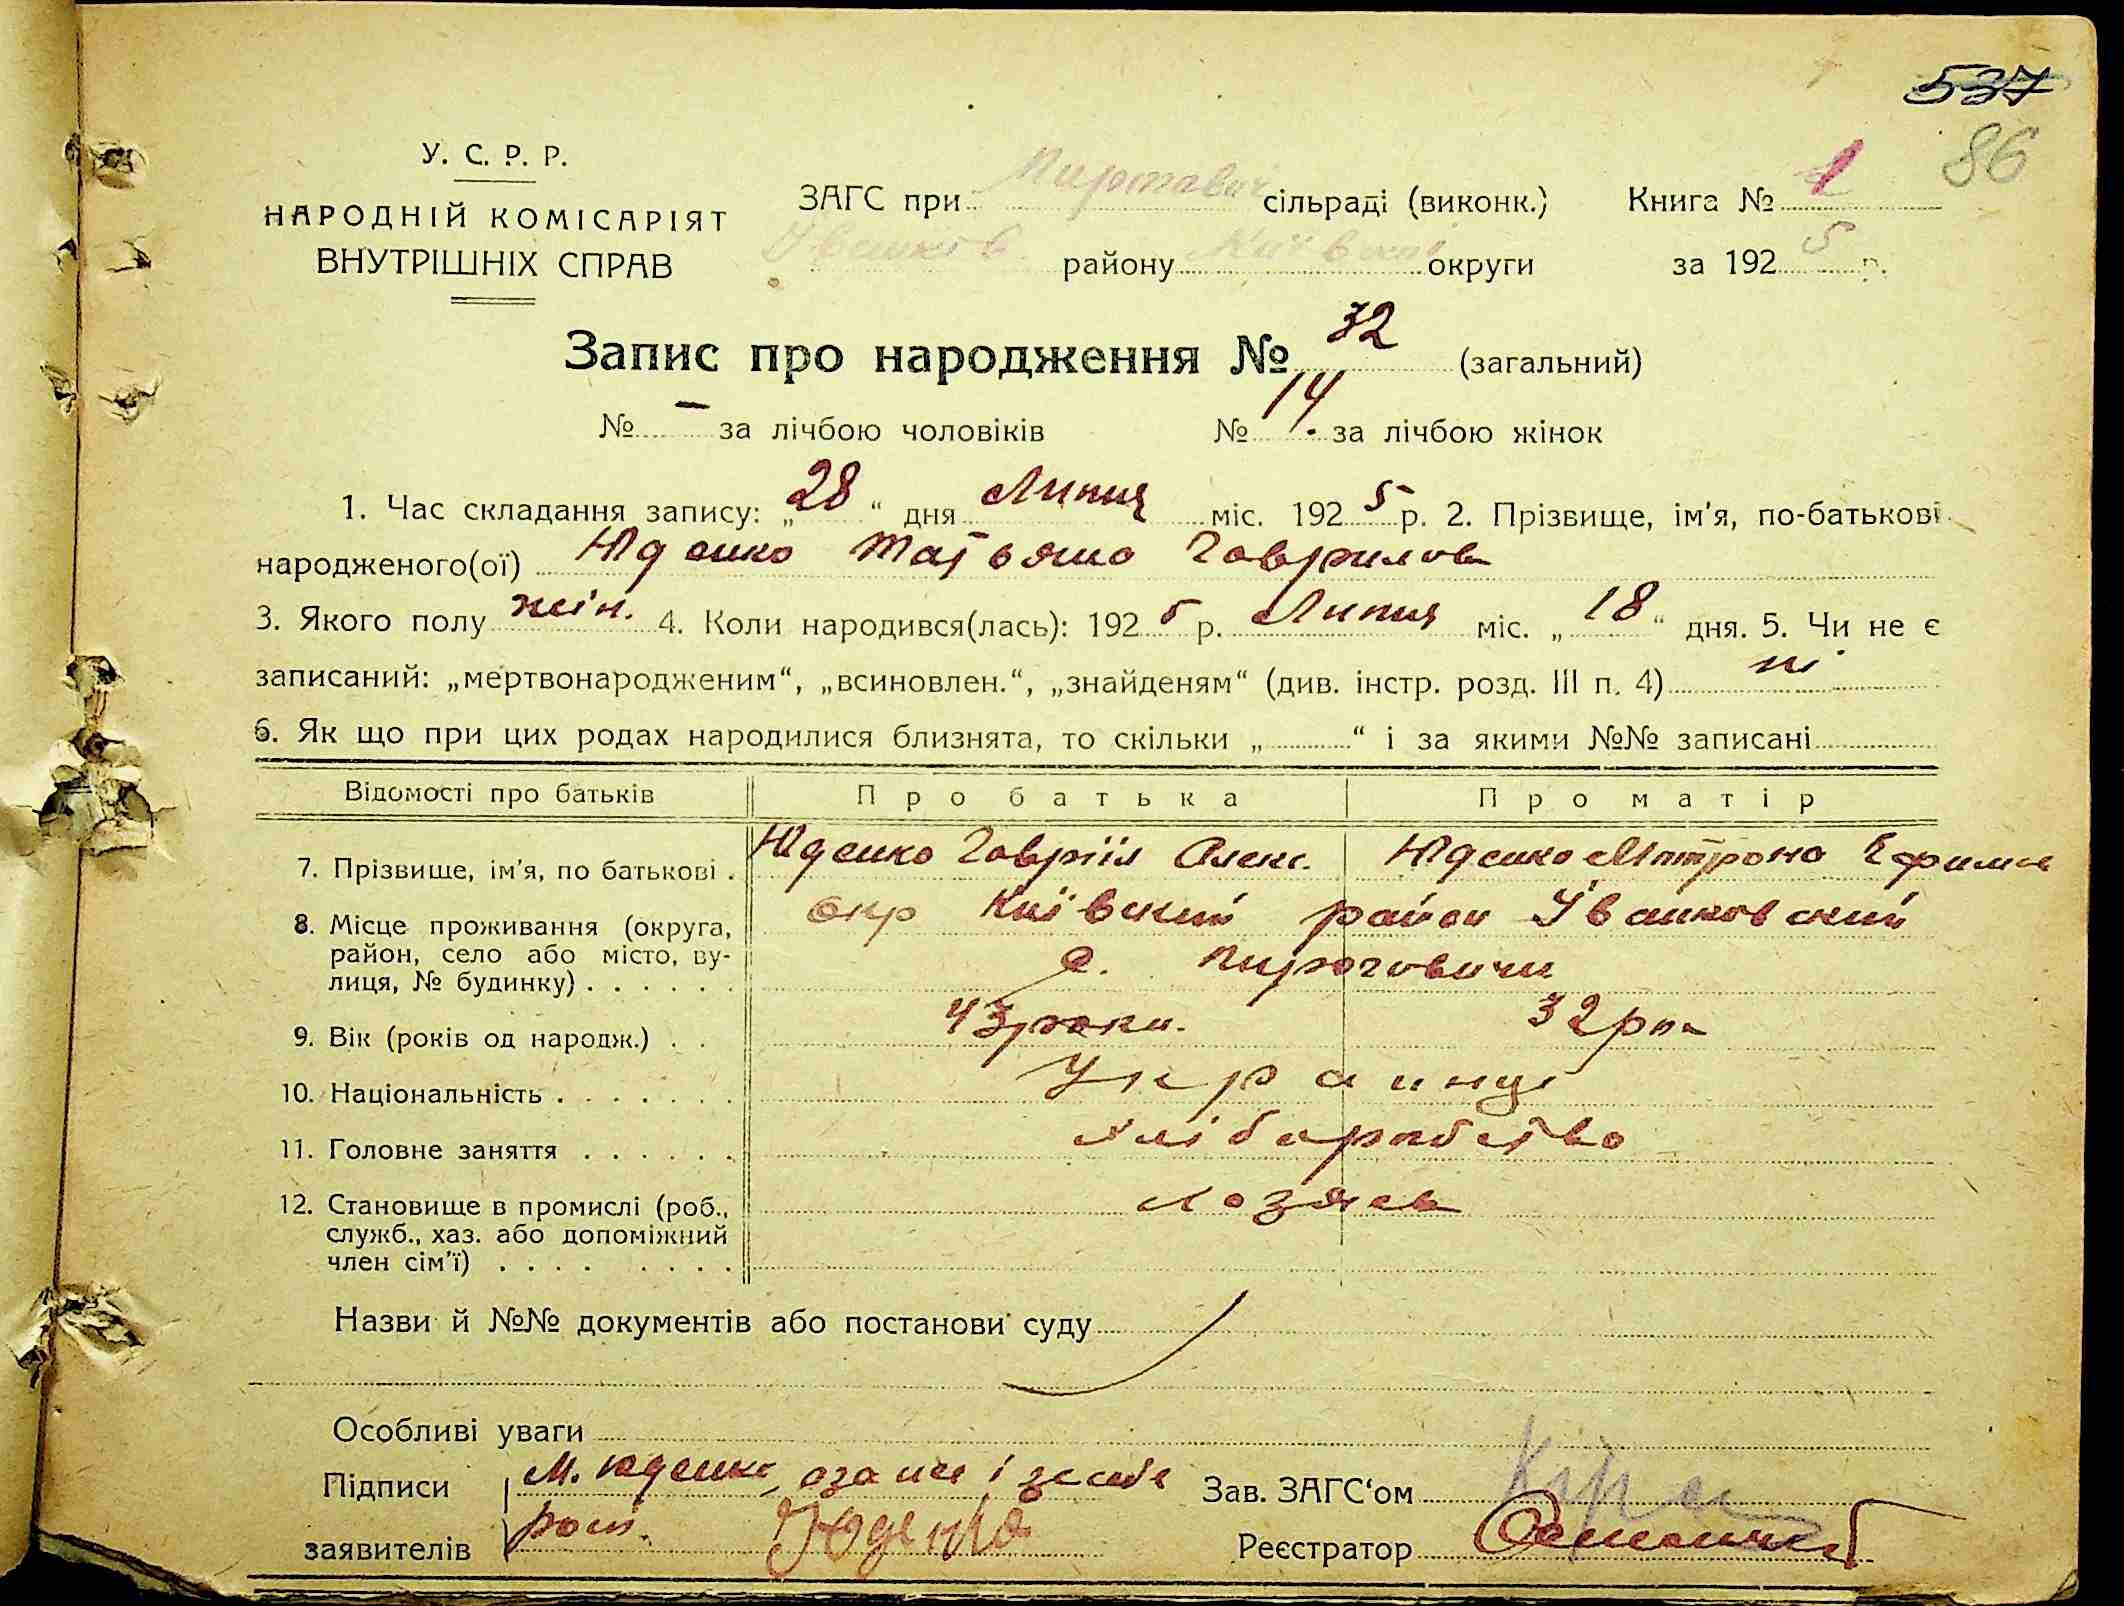 537
86
У. С. Р. Р.
НАРОДНІЙ КОМІСАРІЯТ
ВНУТРІШНІХ СПРАВ
ЗАГС при сільраді (виконк.) Книга № 1
району Київської округи за 192 5 р.
Запис про народження № 32 (загальний)
№ — за лічбою чоловіків № 14 за лічбою жінок
1. Час складання запису: „28“ дня Липця міс. 192 5 р. 2. Прізвище, ім'я, по-батькові
народженого(ої) Юденко Татьяна Гаврилов
3. Якого полу жін. 4. Коли народився(лась): 192 5 р. Липця міс. „18“ дня. 5. Чи не є
записаний: „мертвонародженим“, „всиновлен.“, „знайденям“ (див. інстр. розд. III п. 4) ні
6. Як що при цих родах народилися близнята, то скільки „ “ і за якими №№ записані
Відомості про батьків Про батька Про матір
7. Прізвище, ім'я, по батькові . Юденко Гавріїл Олекс. Юденко Мотрона Ефимов
8. Місце проживання (округа, окр Київский район Іванковский
район, село або місто, ву- с. Пироговичи
лиця, № будинку) . . . . . .
9. Вік (років од народж.) . . 43 роки. 32 рок
10. Національність . . . . . . . Украинці
11. Головне заняття . . . . . . хліборобство
12. Становище в промислі (роб., хозяев
служб., хаз. або допоміжний
член сім'ї) . . . . . . . .
Назви й №№ документів або постанови суду
Особливі уваги
Підписи М. Юденко, а за нее і за себе Зав. ЗАГС'ом
заявителів роспі. Юденко Реєстратор